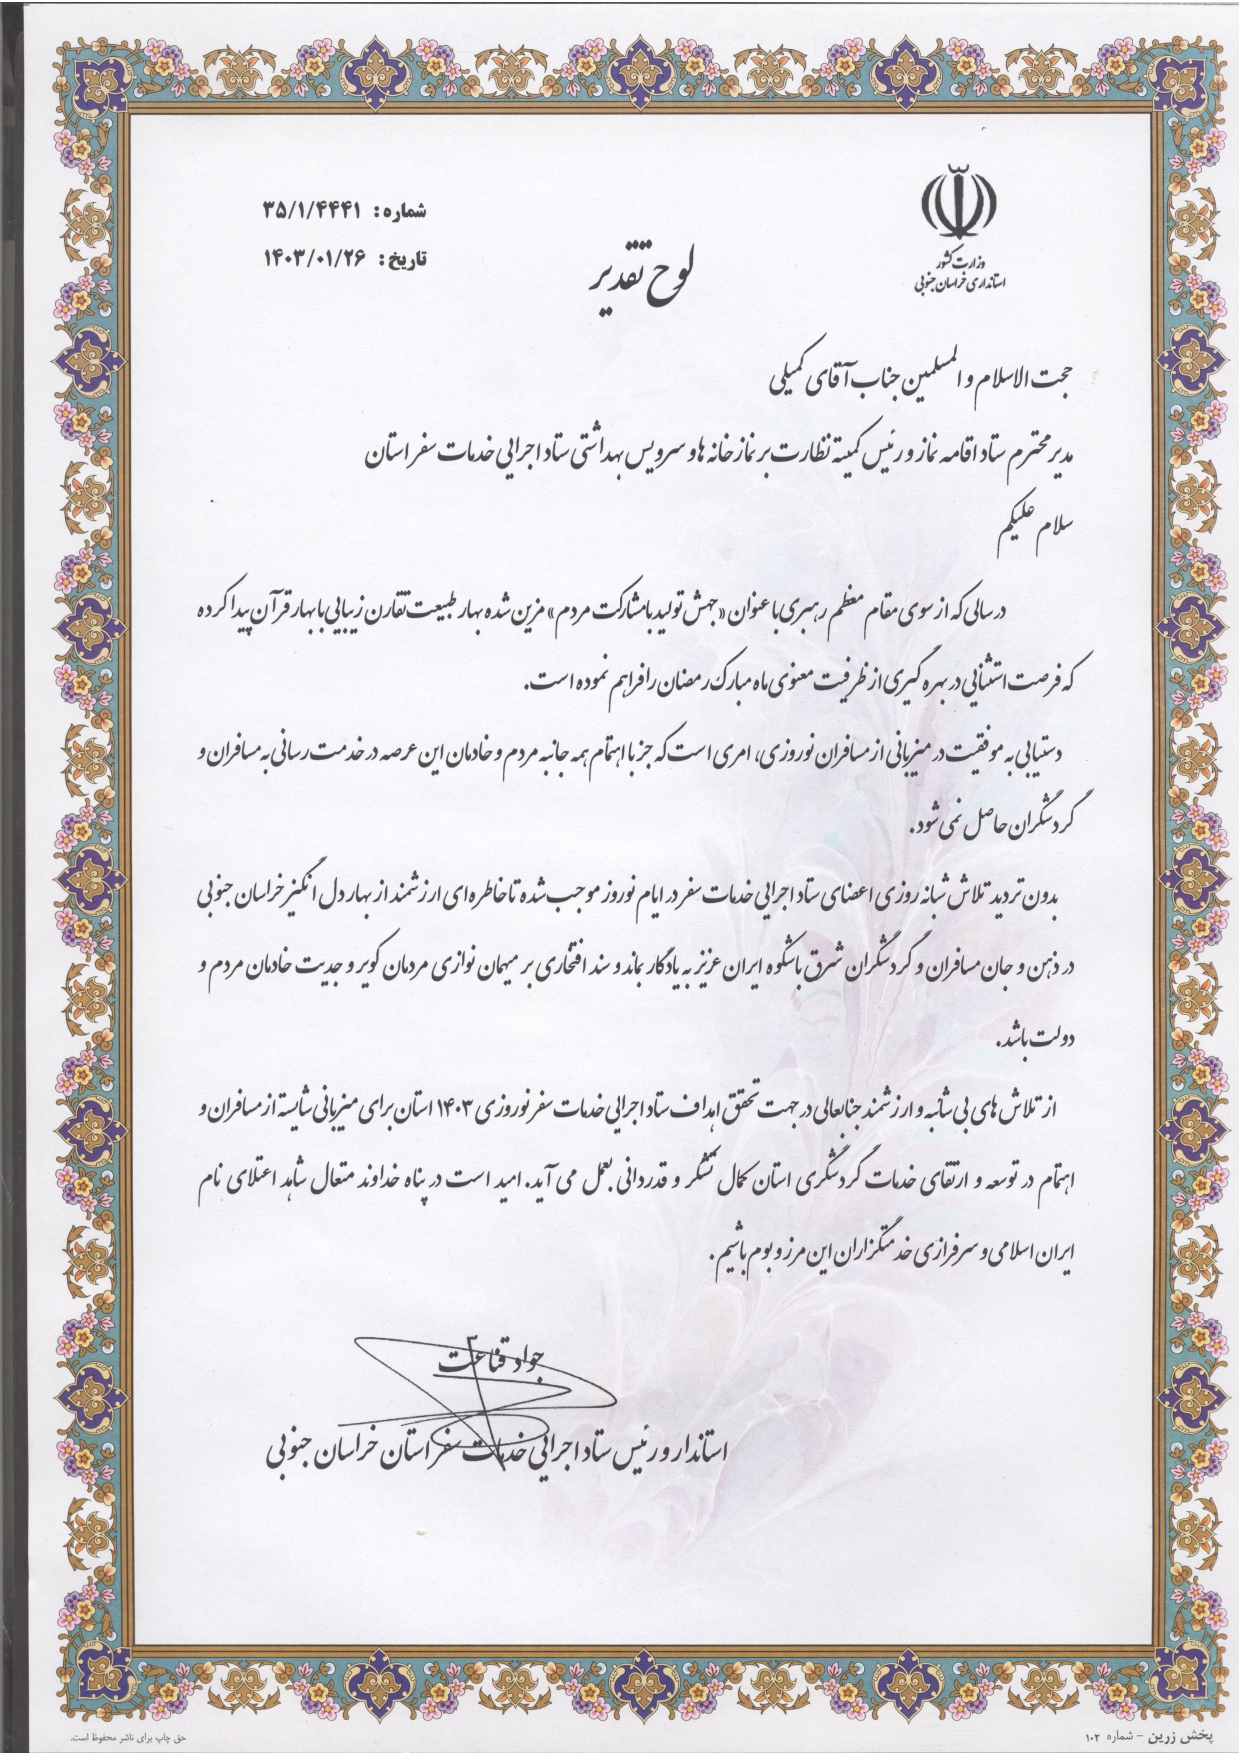 وزارت کشور
استانداری خراسان جنوبی
شماره: ۳۵/۱/۴۴۴۱
تاریخ: ۱۴۰۳/۰۱/۲۶
لوح تقدیر
حجت الاسلام و المسلمین جناب آقای کمیلی
مدیر محترم ستاد اقامه نماز و رئیس کمیته نظارت بر نمازخانه ها و سرویس بهداشتی ستاد اجرایی خدمات سفر استان
سلام علیکم
در سالی که از سوی مقام معظم رهبری با عنوان «جهش تولید با مشارکت مردم» مزین شده بهار طبیعت تقارن زیبایی با بهار قرآن پیدا کرده
که فرصت استثنایی در بهره گیری از ظرفیت معنوی ماه مبارک رمضان را فراهم نموده است.
دستیابی به موفقیت در میزبانی از مسافران نوروزی، امری است که جز با اهتمام همه جانبه مردم و خادمان این عرصه در خدمت رسانی به مسافران و
گردشگران حاصل نمی شود.
بدون تردید تلاش شبانه روزی اعضای ستاد اجرایی خدمات سفر در ایام نوروز موجب شده تا خاطره ای ارزشمند از بهار دل انگیز خراسان جنوبی
در ذهن و جان مسافران و گردشگران شرق باشکوه ایران عزیز به یادگار بماند و سند افتخاری بر میهمان نوازی مردمان کویر و جدیت خادمان مردم و
دولت باشد.
از تلاش های بی شائبه و ارزشمند جنابعالی در جهت تحقق اهداف ستاد اجرایی خدمات سفر نوروزی ۱۴۰۳ استان برای میزبانی شایسته از مسافران و
اهتمام در توسعه و ارتقای خدمات گردشگری استان کمال تشکر و قدردانی بعمل می آید. امید است در پناه خداوند متعال شاهد اعتلای نام
ایران اسلامی و سرفرازی خدمتگزاران این مرز و بوم باشیم.
جواد قناعت
استاندار و رئیس ستاد اجرایی خدمات سفر استان خراسان جنوبی
پخش زرین - شماره ۱۰۲
حق چاپ برای ناشر محفوظ است.